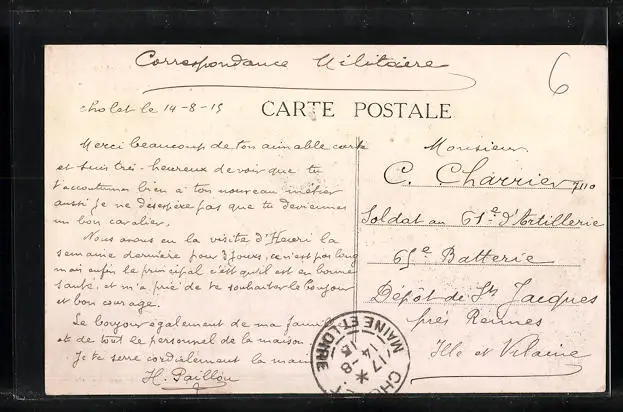 Correspondance Militaire
6
cholet le 14-8-15
CARTE POSTALE
Merci beaucoup de ton aimable carte
et suis très-heureux de voir que tu
t'accoutumes bien à ton nouveau métier
aussi je ne désespère pas que tu deviennes
un bon cavalier.
Nous avons eu la visite d'Henri la
semaine dernière pour 3 jours, ce n'est pas long
mais enfin le principal c'est qu'il est en bonne
santé, et m'a prié de te souhaiter le bonjour
et bon courage.
Le bonjour également de ma famille
et de tout le personnel de la maison.
Je te serre cordialement la main
H. Paillou
Monsieur
C. Charrier
Soldat au 61e d'Artillerie
65e Batterie
Dépôt de St Jacques
près Rennes
Ille et Vilaine
MAINE ET LOIRE
17 * 14 -8 15